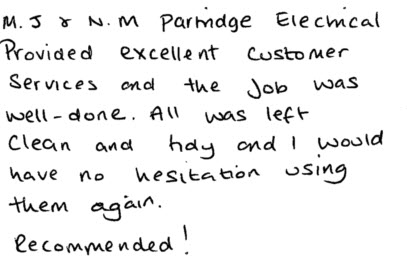 M. J & N. M Partridge Electrical
Provided excellent customer
Services and the job was
well-done. All was left
Clean and tidy and I would
have no hesitation using
them again.
Recommended!